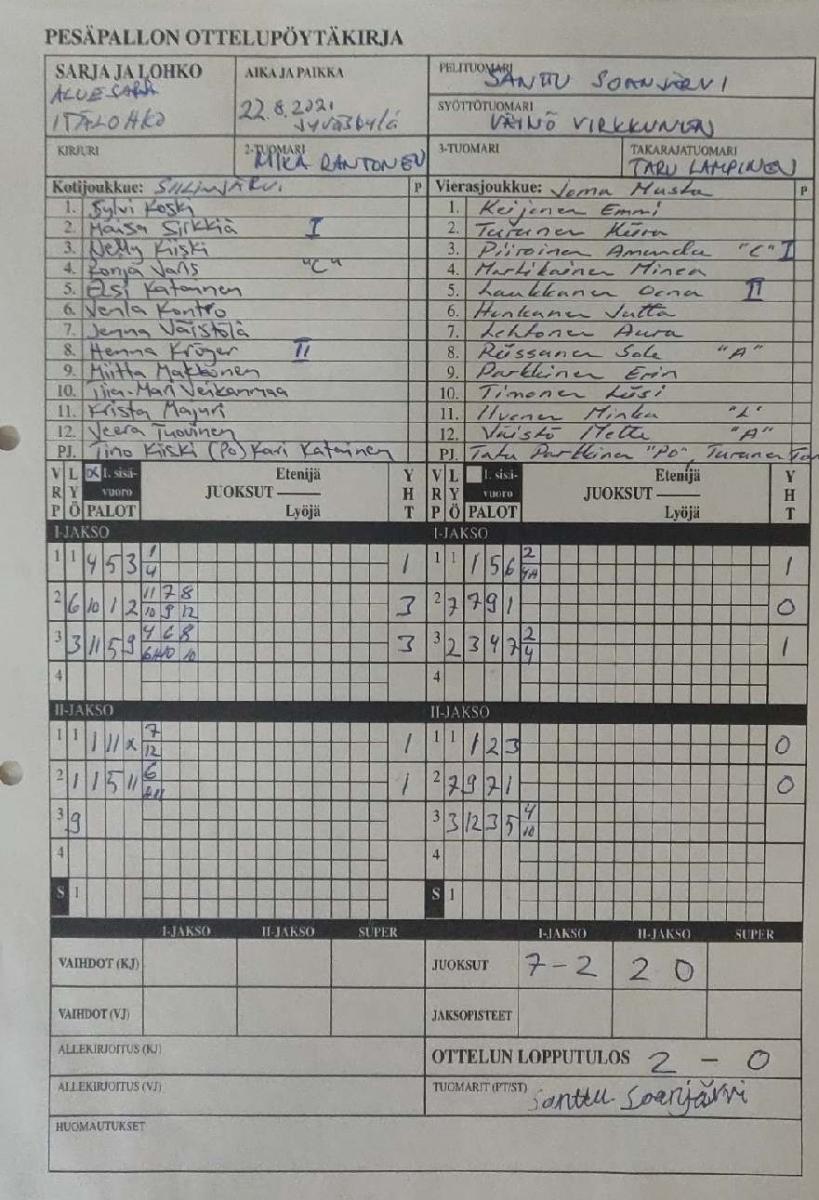 PESÄPALLON OTTELUPÖYTÄKIRJA
SARJA JA LOHKO
ALUESARJA
ITÄLOHKO
AIKA JA PAIKKA
22.8.2021
Jyväskylä
PELITUOMARI
SANTTU SOANJÄRVI
SYÖTTÖTUOMARI
VÄINÖ VIRKKUNEN
KIRJURI
2-TUOMARI
MIKA RANTONEN
3-TUOMARI
TAKARAJATUOMARI
TARU LAMPINEN
Kotijoukkue: SIILINJÄRVI P
1. Sylvi Koski
2. Maisa Sirkkiä I
3. Nelly Kiiski
4. Ronja Varis "C"
5. Elsi Katainen
6. Venla Kontro
7. Jenna Väistölä
8. Henna Kröger II
9. Miitta Makkonen
10. Tiia-Mari Veikanmaa
11. Krista Majuri
12. Veera Tuovinen
PJ. Tino Kiiski (PO) Kari Katainen
Vierasjoukkue: Joma Musta P
1. Keijonen Emmi
2. Turunen Kiira
3. Piiroinen Amanda "C" I
4. Martikainen Minea
5. Laukkanen Oona II
6. Honkanen Jutta
7. Lehtonen Aura
8. Rissanen Salla "A"
9. Parkkinen Erin
10. Timonen Liisi
11. Ilvonen Minka "L"
12. Väistö Metta "A"
PJ. Tatu Parkkinen "PO", Turunen
V R P L Y Ö 1. sisävuoro PALOT Etenijä JUOKSUT Lyöjä Y H T
V R P L Y Ö 1. sisävuoro PALOT Etenijä JUOKSUT Lyöjä Y H T
I-JAKSO
1 1 4 5 3 1/4 1
2 6 10 1 2 11/10 7/9 8/12 3
3 3 11 5 9 4 6 8 3
4
I-JAKSO
1 1 1 5 6 2/4H 1
2 7 7 9 1 0
3 2 3 4 7 2/4 1
4
II-JAKSO
1 1 1 11 x 7/12 1
2 1 1 5 11 6 1
3 9
4
S 1
II-JAKSO
1 1 1 2 3 0
2 7 9 7 1 0
3 3 12 3 5 4/10
4
S 1
I-JAKSO II-JAKSO SUPER
VAIHDOT (KJ)
VAIHDOT (VJ)
ALLEKIRJOITUS (KJ)
ALLEKIRJOITUS (VJ)
I-JAKSO II-JAKSO SUPER
JUOKSUT 7-2 2 0
JAKSOPISTEET
OTTELUN LOPPUTULOS 2 - 0
TUOMARIT (PT/ST) Santtu Soanjärvi
HUOMAUTUKSET